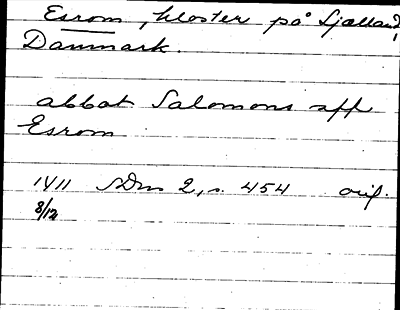 Esrom, kloster på Själland,
Danmark.
abbot Salomons aff
Esrom
1411 SDns 2, s. 454 orig.
8/12